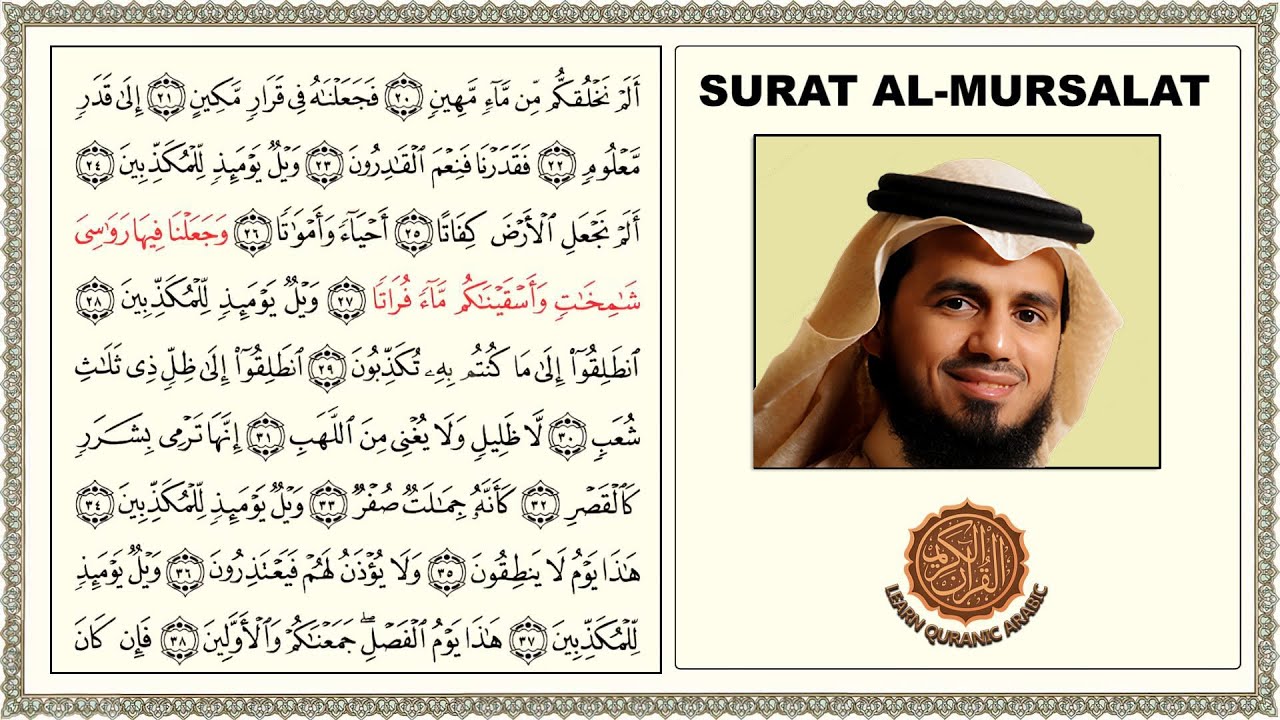 أَلَمْ نَخْلُقكُّم مِّن مَّآءٍ مَّهِينٍ ٢٠ فَجَعَلْنَٰهُ فِى قَرَارٍ مَّكِينٍ ٢١ إِلَىٰ قَدَرٍ
مَّعْلُومٍ ٢٢ فَقَدَرْنَا فَنِعْمَ ٱلْقَٰدِرُونَ ٢٣ وَيْلٌ يَوْمَئِذٍ لِّلْمُكَذِّبِينَ ٢٤
أَلَمْ نَجْعَلِ ٱلْأَرْضَ كِفَاتًا ٢٥ أَحْيَآءً وَأَمْوَٰتًا ٢٦ وَجَعَلْنَا فِيهَا رَوَٰسِىَ
شَٰمِخَٰتٍ وَأَسْقَيْنَٰكُم مَّآءً فُرَاتًا ٢٧ وَيْلٌ يَوْمَئِذٍ لِّلْمُكَذِّبِينَ ٢٨
ٱنطَلِقُوٓا۟ إِلَىٰ مَا كُنتُم بِهِۦ تُكَذِّبُونَ ٢٩ ٱنطَلِقُوٓا۟ إِلَىٰ ظِلٍّ ذِى ثَلَٰثِ
شُعَبٍ ٣٠ لَّا ظَلِيلٍ وَلَا يُغْنِى مِنَ ٱللَّهَبِ ٣١ إِنَّهَا تَرْمِى بِشَرَرٍ
كَٱلْقَصْرِ ٣٢ كَأَنَّهُۥ جِمَٰلَتٌ صُفْرٌ ٣٣ وَيْلٌ يَوْمَئِذٍ لِّلْمُكَذِّبِينَ ٣٤
هَٰذَا يَوْمُ لَا يَنطِقُونَ ٣٥ وَلَا يُؤْذَنُ لَهُمْ فَيَعْتَذِرُونَ ٣٦ وَيْلٌ يَوْمَئِذٍ
لِّلْمُكَذِّبِينَ ٣٧ هَٰذَا يَوْمُ ٱلْفَصْلِ ۖ جَمَعْنَٰكُمْ وَٱلْأَوَّلِينَ ٣٨ فَإِن كَانَ
SURAT AL-MURSALAT
القرآن الكريم
LEARN QURANIC ARABIC